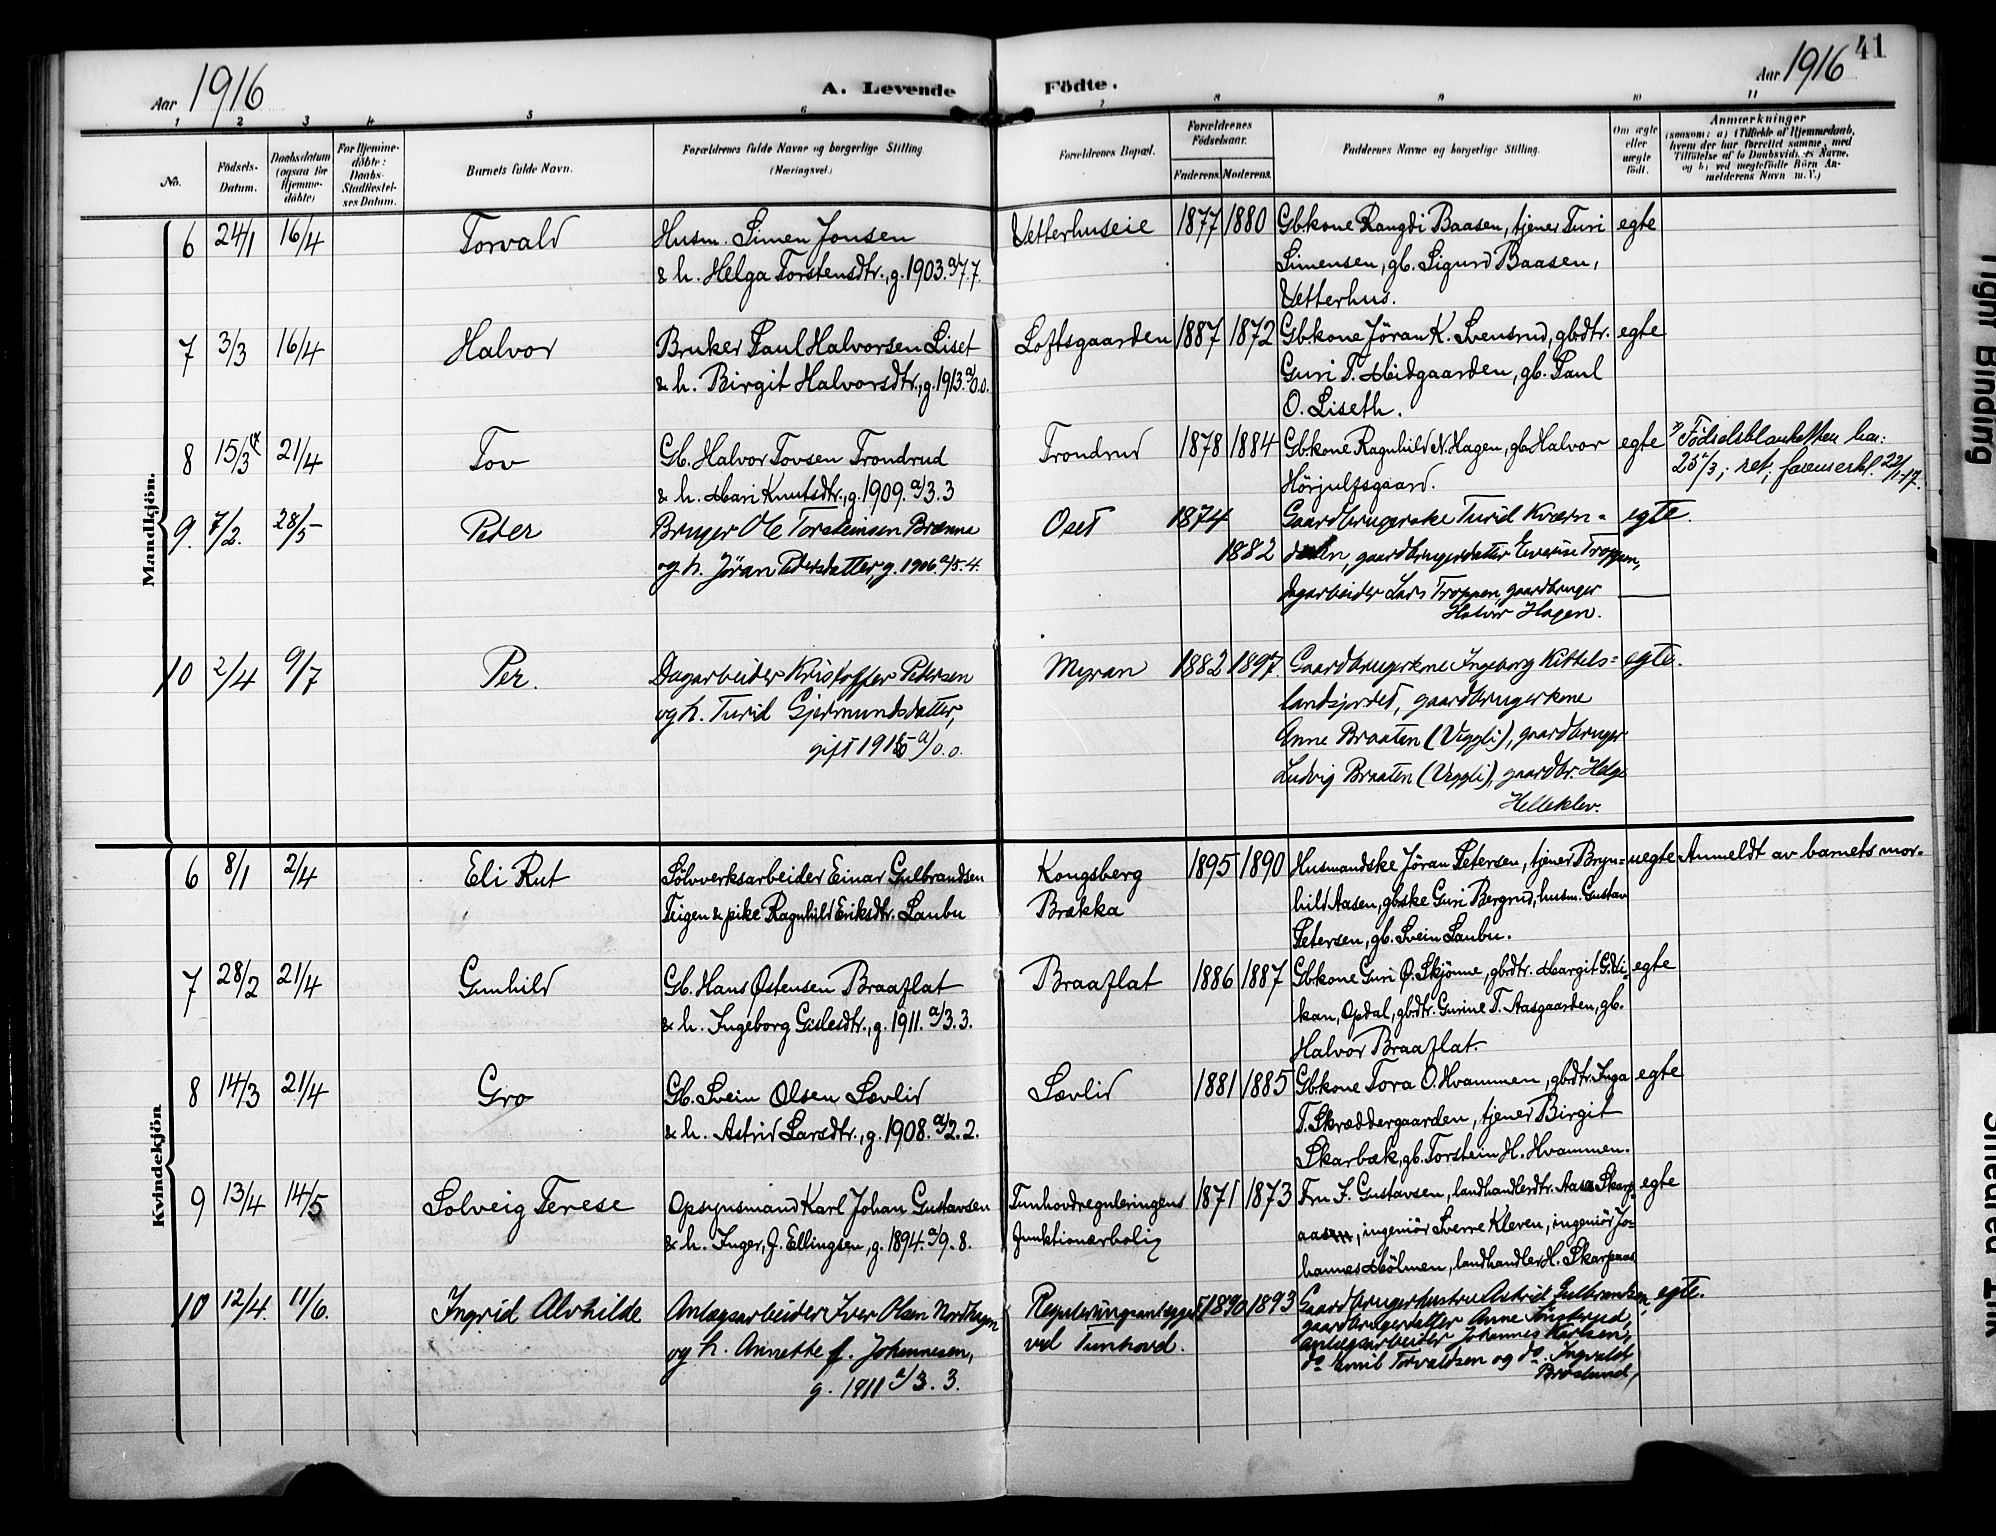 Aar 1916
A. Levende
Födte.
Aar 1916
41
1 2 3 4 5 6 7 8 9 10 11
No.
Födsels-
Datum.
Daabsdatum
(ogsaa for
Hjemme-
döbte)
For Hjemme-
döbte:
Daabs-
Stadfæstel-
ses Datum.
Barnets fulde Navn.
Forældrenes fulde Navne og borgerlige Stilling
(Næringsvei.)
Forældrenes Bopæl.
Forældrenes
Födselsaar.
Faderens. Moderens.
Faddernes Navne og borgerlige Stilling.
Om ægte
eller
uægte
födt.
Anmærkninger
(saasom: a) i Tilfælde af Hjemmedaab,
hvem der har forrettet samme, med
Tilföielse af to Daabsvidners Navne,
og b) ved uægtefödte Börn An-
melderens Navn m. V.)
Mandkjön.
6 24/1 16/4 Torvald Husm. Simen Jonsen Vetterhuseie 1877 1880 Gbkone Rangdi Baasen, tjener Turi egte
& h. Helga Torstensdtr., g. 1903. a/7.7. Simensen, gb. Sigurd Baasen,
Vetterhus.
7 3/3 16/4 Halvor Bruker Paul Halvorsen Liset Loftsgaarden 1887 1872 Gbkone Jöran K. Svensrud, gbdtr. egte
& h. Birgit Halvorsdtr., g. 1913. a/0.0. Guri T. Midgaarden, gb. Paul
O. Liseth.
8 15/3 21/4 Tov Gb. Halvor Tovsen Trondrud Trondrud 1878 1884 Gbkone Ragnhild N. Hagen, gb. Halvor egte Födselsblanketten har:
& h. Mari Knutsdtr., g. 1909. a/3.3 Hörjulfsgaard. 25/3; ret,
9. 7/2. 28/5 Peter Bruger Ole Torsteinsen Brænne Oset 1874 Gaardbrugerske Turid Kværn= egte.
og h. Jöran Pedersdatter g. 1906 a/5.4. 1882 dalen, gaardbrugerdatter Troppen,
dagarbeider Lars Troppen, gaardbruger
Halvor Hagen.
10 2/4 9/7 Per. Dagarbeider Kristoffer Petersen Myran 1882 1897. Gaardbrugerkone Ingeborg Kittels= egte.
og h. Turid Gjermundsdatter, landsjordet, gaardbrugerkone
gift 1915 a/0.0. Anne Braaten (Veggli), gaardbruger
Ludvig Braaten (Veggli), gaardbr. Helge
Helleklev.
Kvindekjön
6 8/1 2/4 Eli Rut Sölvverksarbeider Einar Gulbrandsen Kongsberg 1895 1890 Husmandske Jöran Petersen, tjener Bryn= uegte Anmeldt av barnets mor.
Teigen & pike Ragnhild Eriksdtr. Laubu Brækka hild Aasen, gbske Guri Bergrud, husm. Gustav
Petersen, gb. Svein Laubu.
7 28/2 21/4 Gunhild Gb. Hans Østensen Braaflat Braaflat 1886 1887 Gbkone Guri O. Skjönne, gbrdtr. Margit G. egte
& h. Ingeborg Gislesdtr., g. 1911. a/3.3. kan, Opdal, gbrdtr. Gurine T. Aasgaarden, gb.
Halvor Braaflat.
8 14/3 21/4 Gro Gb. Svein Olsen Sævlid Sævlid 1881 1885 Gbkone Tora O. Hvammen, gbrdtr. Inga egte
& h. Astrid Larsdtr., g. 1908. a/2.2. T. Skræddergaarden, tjener Birgit
Skarbæk, gb. Torstein H. Hvammen.
9 13/4 14/5 Solveig Terese Opsynsmand Karl Johan Gustavsen Tunhovdreguleringens 1871 1873 Fru J. Gustavsen, landhandlerdtr. Aasa Skarp- egte
& h. Inger, J. Ellingsen, g. 1894. a/9.8. funktionærbolig aasen, ingeniör Sverre Kleven, ingeniör Jo=
hannes Mölmen, landhandler H. Skarpaas.
10 12/4. 11/6. Ingrid Alvhilde Anlægsarbeider Iver Olsen Nordhagen Reguleringsanlegget 1890 1893 Gaardbrugerhustru Astrid Gulbrandsen, egte.
og h. Annette f. Johannesen, ved Tunhovd. gaardbrugerdatter Anne
g. 1911 a/3.3. anlægsarbeider Johannes Karlsen,
do Emil Torvaldsen og do. Ingvald